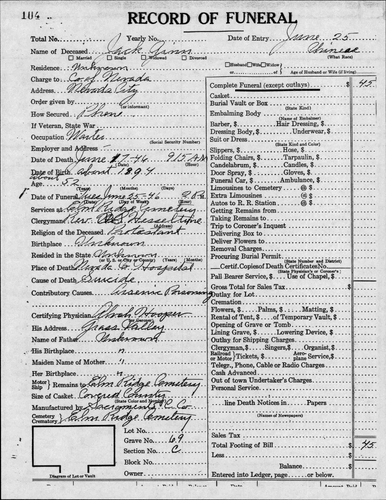 104
RECORD OF FUNERAL
Total No. Yearly No. Date of Entry June 25
Name of Deceased Jack Ginn Chinese
(What Race)
Married Single Widowed Divorced Husband Wife Widow of
or
Residence Unknown Age of Husband or Wife (if living)
Charge to Co of Nevada
Address Nevada City
Order given by
(or informant)
How Secured Phone
If Veteran, State War
Occupation
(Social Security Number)
Employer and Address
Date of Death June 17-46 915 AM
Date of Birth about 1894
Age 52
Date of Funeral Tues June 25-46
Services at Elm Ridge Cemetery
Clergyman Rev Hesseltine
Religion of the Deceased Protestant
Birthplace Unknown
Resided in the State Unknown
(U.S. or City or County)
Place of Death Nevada Co Hospital
Cause of Death Suicide
Contributory Causes Arsenic Poisoning
Certifying Physician Hooper
His Address Grass Valley
Name of Father Unknown
His Birthplace "
Maiden Name of Mother "
Her Birthplace "
Motor Ship Remains to Elm Ridge Cemetery
Size of Casket Covered County
(State Color and Number)
Manufactured by Sacramento C. Co
Cemetery Crematory Elm Ridge Cemetery
Lot No.
Grave No. 69
Section No. C
Block No.
Owner
Diagram of Lot or Vault
Complete Funeral (except outlays) 45
Casket
Burial Vault or Box
(State Kind)
Embalming Body
(Name of Embalmer)
Barber, $ Hair Dressing, $
Dressing Body, $ Underwear, $
Suit or Dress
(State Kind and Color)
Slippers, $ Hose, $
Folding Chairs, $ Tarpaulin, $
Candelabrum, $ Candles, $
Door Spray, $ Gloves, $
Funeral Car, $ Ambulance, $
Limousines to Cemetery @ $
Extra Limousines @ $
Autos to R. R. Station @ $
Getting Remains from
Taking Remains to
Trip to Coroner's Inquest
Delivering Box to
Deliver Flowers to
Removal Charges
Procuring Burial Permit
(State Number and District)
Certif. Copies of Death Certificate No.
(State Physician's or Coroner's)
Pall Bearer Service, $ Use of Chapel, $
Gross Total for Sales Tax $
Outlay for Lot
Cremation
Flowers, $ Palms, $ Matting, $
Rental of Tent, $ of Temporary Vault, $
Opening of Grave or Tomb
Lining Grave, $ Lowering Device, $
Outlay for Shipping Charges
Clergyman, $ Singers, $ Organist, $
Railroad Motor Tickets, $ Aeroplane Service, $
Telegr., Phone, Cable or Radio Charges
Cash Advanced
Out of town Undertaker's Charges
Personal Service
line Death Notices in Papers
(Names of Newspapers)
Sales Tax
Total Footing of Bill 45
Less
Balance
Entered into Ledger, page or below.